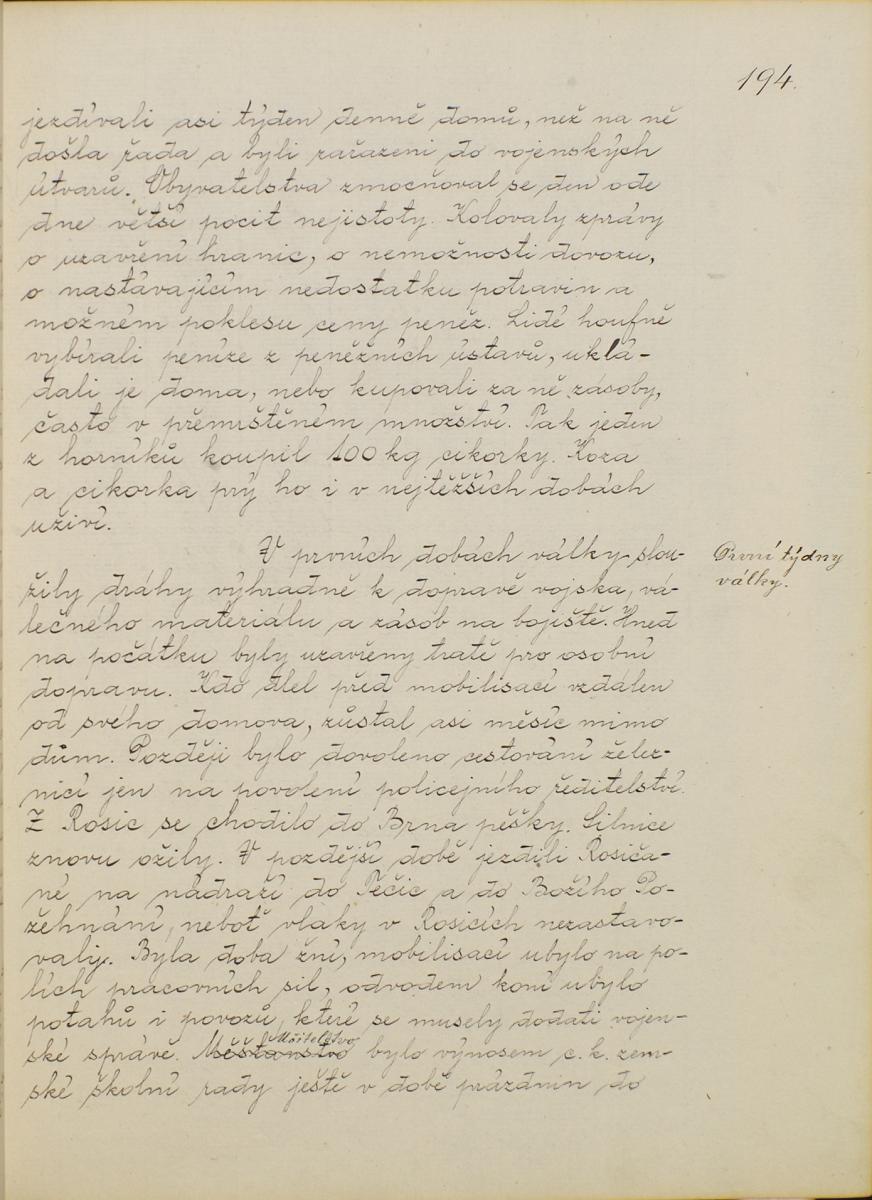 194.
jezdívali asi týden denně domů, než na ně
došla řada a byli zařazeni do vojenských
útvarů. Obyvatelstva zmocňoval se den ode
dne větší pocit nejistoty. Kolovaly zprávy
o uzavření hranic, o nemožnosti dovozu,
o nastávajícím nedostatku potravin a
možném poklesu ceny peněz. Lidé houfně
vybírali peníze z peněžních ústavů, uklá-
dali je doma, nebo kupovali za ně zásoby,
často v přemrštěném množství. Tak jeden
z horníků koupil 100 kg cikorky. Koza
a cikorka prý ho i v nejtěžších dobách
uživí.
V prvních dobách války slou-
žily dráhy výhradně k dopravě vojska, vá-
lečného materiálu a zásob na bojiště. Hned
na počátku byly uzavřeny tratě pro osobní
dopravu. Kdo dlel před mobilisací vzdálen
od svého domova, zůstal asi měsíc mimo
dům. Později bylo dovoleno cestování želez-
nicí jen na povolení policejního ředitelství.
Z Rosic se chodilo do Brna pěšky. Silnice
znovu ožily. V pozdější době jezdili Rosiča-
né na nádraží do Tečic a do Božího Po-
žehnání, neboť vlaky v Rosicích nezastavo-
valy. Byla doba žní, mobilisací ubylo na po-
lích pracovních sil, odvodem koní ubylo
potahů i povozů, které se musely dodati vojen-
ské správě. Měšťanstvo Učitelstvo bylo výnosem c. k. zem-
ské školní rady ještě v době prázdnin do
První týdny
války.